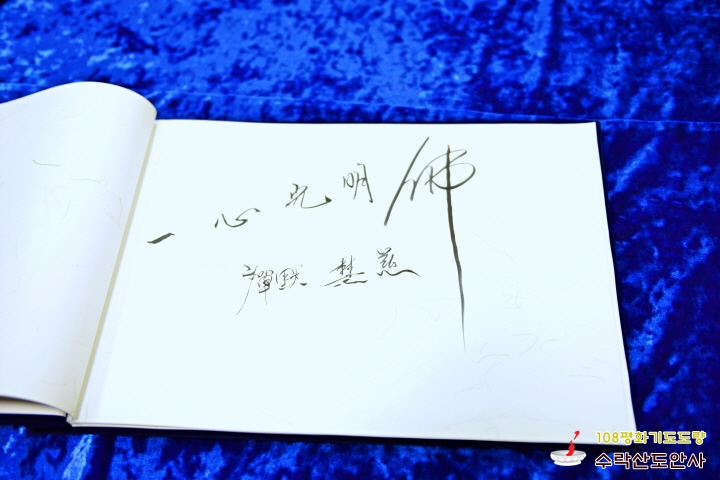 一心光明佛
禪默 慧慈
108평화기도도량
수락산도안사